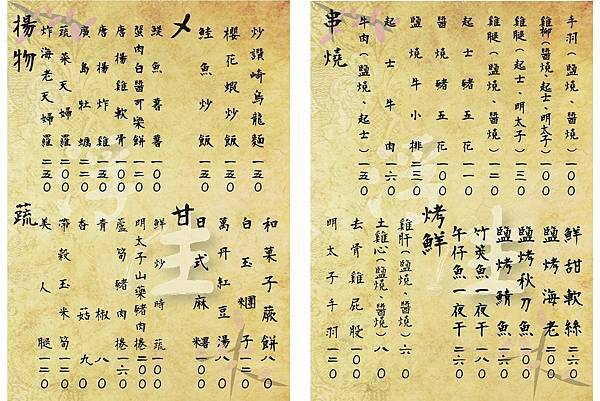 炒讚崎烏龍麵一五〇
櫻花蝦炒飯一五〇
鮭魚炒飯一五〇
〆
魚薯薯一五〇
蟹肉白醬可樂餅一二〇
唐揚雞軟骨一〇〇
唐揚炸雞一五〇
廣島牡蠣二五〇
蔬菜天婦羅二〇〇
炸海老天婦羅二五〇
揚物
和菓子蕨餅八〇
白玉糰子一二〇
萬丹紅豆湯八〇
日式麻糬一〇〇
甘
鮮炒時蔬一〇〇
明太子山藥豬肉捲二〇〇
蘆筍豬肉捲一六〇
青椒八〇
香菇九〇
帶穀玉米筍一〇〇
美人腿一二〇
蔬
手羽(鹽燒、醬燒)一〇〇
雞柳(醬燒、起士、明太子)一〇〇
雞腿(起士、明太子)一三〇
雞腿(鹽燒、醬燒)一二〇
起士豬五花一一〇
醬燒豬五花一〇〇
鹽燒牛小排二三〇
起士牛肉一六〇
牛肉(鹽燒、起士)一五〇
串燒
鮮甜軟絲二六〇
鹽烤海老二〇〇
鹽烤秋刀魚一〇〇
鹽烤鯖魚一二〇
竹筴魚一夜干一八〇
午仔魚一夜干二六〇
烤鮮
雞肝(鹽燒、醬燒)六〇
土雞心(鹽燒、醬燒)八〇
去骨雞屁股一〇〇
明太子手羽一二〇